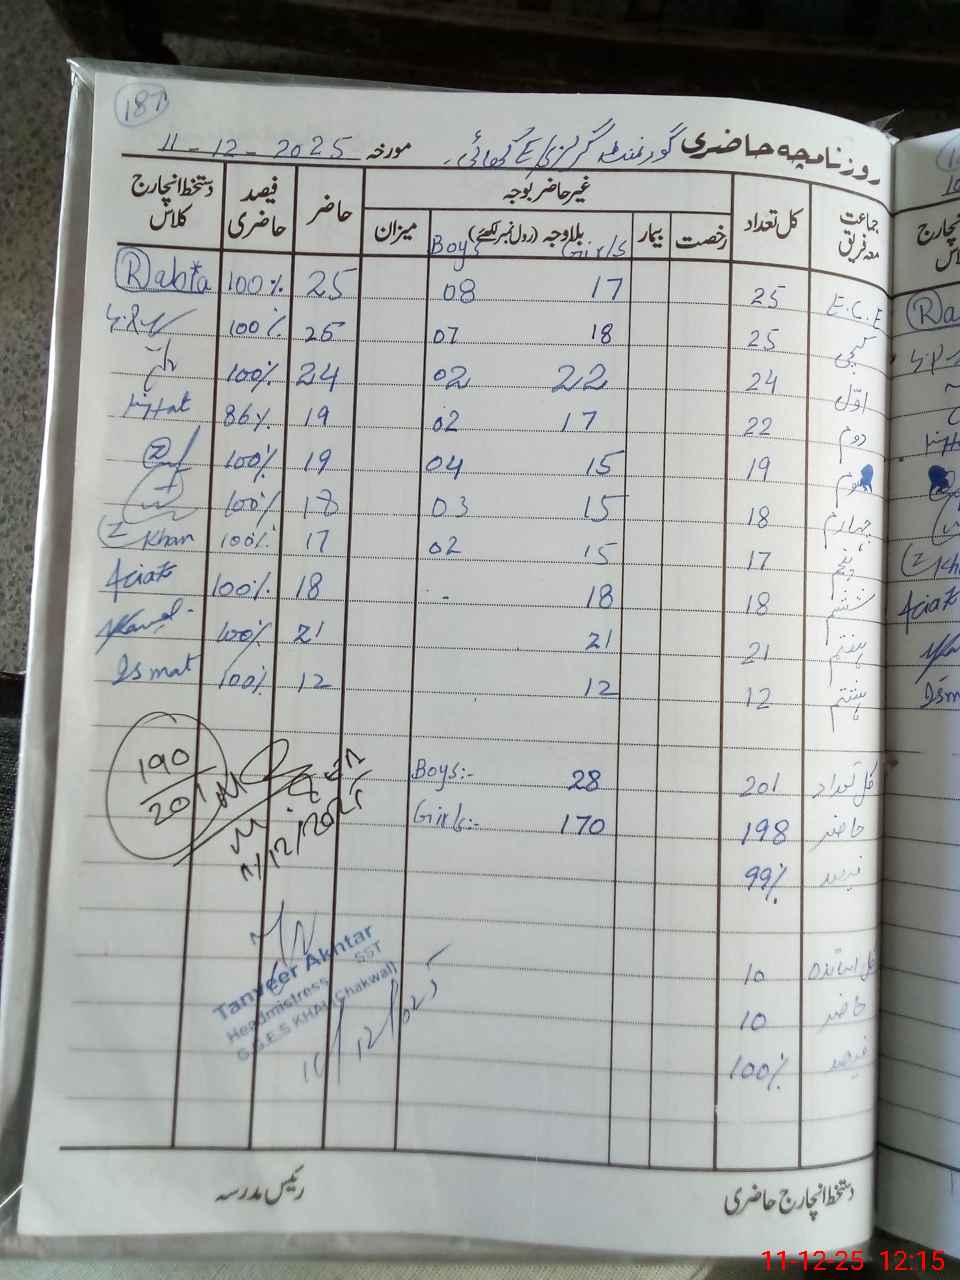 187
روزنامچہ حاضری گورنمنٹ گرلز ای کھائی مورخہ 11-12-2025
جماعت معہ فریق کل تعداد غیر حاضر بوجہ حاضر فیصد حاضری دستخط انچارج کلاس
رخصت بیمار بلاوجہ (رول نمبر لکھیئے) میزان
Boys Girls
E.C.E 25 17 08 25 100% Rabta
کچی 25 18 07 25 100%
اوّل 24 22 02 24 100%
دوم 22 17 02 19 86%
سوم 19 15 04 19 100%
چہارم 18 15 03 18 100%
پنجم 17 15 02 17 100% Z Khan
ششم 18 18 - 18 100%
ہفتم 21 21 21 100%
ہشتم 12 12 12 100% Ismat
کل تعداد 201 Boys:- 28
حاضر 198 Girls:- 170
فیصد 99%
190
201
11/12/2025
کل اساتذہ 10
حاضر 10
فیصد 100%
Tanveer Akhtar
Headmistress SST
G.G.E.S KHAI (Chakwal)
11/12/025
دستخط انچارج حاضری
رئیس مدرسہ
دستخط انچارج
کلاس
11-12-25 12:15